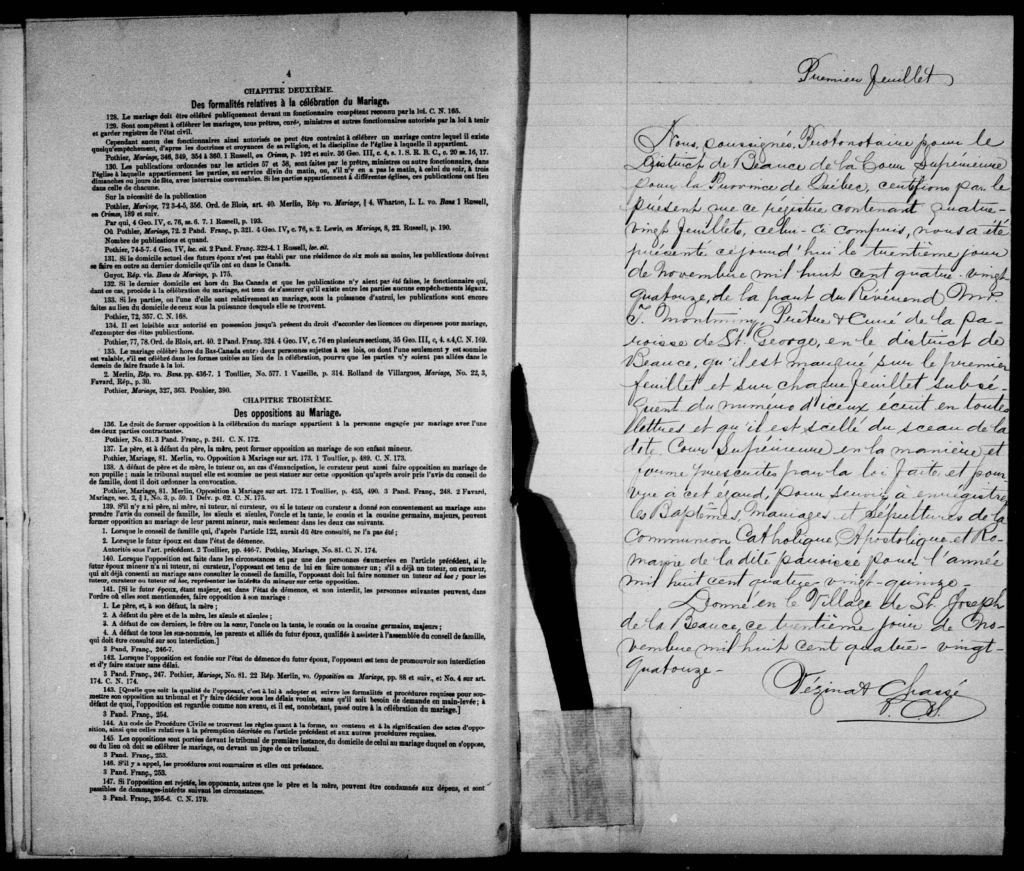 4
CHAPITRE DEUXIÈME.
Des formalités relatives à la célébration du Mariage.
128. Le mariage doit être célébré publiquement devant un fonctionnaire compétent reconnu par la loi. C. N. 165.
129. Sont compétents à célébrer les mariages, tous prêtres, curés, ministres et autres fonctionnaires autorisés par la loi à tenir
et garder registres de l'état civil.
Cependant aucun des fonctionnaires ainsi autorisés ne peut être contraint à célébrer un mariage contre lequel il existe
quelqu'empêchement, d'après les doctrines et croyances de sa religion, et la discipline de l'église à laquelle il appartient.
Pothier, Mariage, 346, 349, 354 à 360. 1 Russell, on Crimes, p. 192 et suiv. 36 Geo. III, c. 4, s. 1. S. R. B. C., c. 20 ss. 16, 17.
130. Les publications ordonnées par les articles 57 et 58, sont faites par le prêtre, ministre ou autre fonctionnaire, dans
l'église à laquelle appartiennent les parties, au service divin du matin, ou, s'il n'y en a pas le matin, à celui du soir, à trois
dimanches ou jours de fête, avec intervalle convenables. Si les parties appartiennent à différentes églises, ces publications ont lieu
dans celle de chacune.
Sur la nécessité de la publication
Pothier, Mariage, 72 3-4-5, 356. Ord. de Blois, art. 40. Merlin, Rép vo. Mariage, § 4. Wharton, L. L. vo. Bans 1 Russell,
on Crimes, 189 et suiv.
Par qui, 4 Geo. IV, c. 76, ss. 6. 7. 1 Russell, p. 193.
Où Pothier, Mariage, 72. 2 Pand. Franç., p. 321. 4 Geo. IV, c. 76, s. 2. Lewis, on Mariage, 8, 22. Russell, p. 190.
Nombre de publications et quand.
Pothier, 74-5-7. 4 Geo. IV, loc. cit. 2 Pand. Franç. 322-4. 1 Russell, loc. cit.
131. Si le domicile actuel des futurs époux n'est pas établi par une résidence de six mois au moins, les publications doivent
se faire en outre au dernier domicile qu'ils ont eu dans le Canada.
Guyot, Rép. vis. Bans de Mariage, p. 175.
132. Si le dernier domicile est hors du Bas Canada et que les publications n'y aient pas été faites, le fonctionnaire qui,
dans ce cas, procède à la célébration du mariage, est tenu de s'assurer qu'il existe entre les parties aucuns empêchements légaux.
133. Si les parties, ou l'une d'elle sont relativement au mariage, sous la puissance d'autrui, les publications sont encore
faites au lieu du domicile de ceux sous la puissance desquels elle se trouvent.
Pothier, 72, 357. C. N. 168.
134. Il est loisible aux autorité en possession jusqu'à présent du droit d'accorder des licences ou dispenses pour mariage,
d'exempter des dites publications.
Pothier, 77, 78. Ord. de Blois, art. 40. 2 Pand. Franç. 324. 4 Geo. IV, c. 76 en plusieurs sections, 35 Geo. III, c. 4. s.4, C. N. 169.
135. Le mariage célébré hors du Bas-Canada entre deux personnes sujettes à ses lois, ou dont l'une seulement y est soumise
est valable, s'il est célébré dans les formes usitées au lieu de la célébration, pourvu que les parties n'y soient pas allées dans le
dessein de faire fraude à la loi.
2. Merlin, Rép. vo. Bans. pp 436-7. 1 Toullier, No. 577. 1 Vazeille, p. 314. Rolland de Villargues, Mariage, No. 22, 3,
Favard, Rép., p. 30.
Pothier, Mariage, 327, 363. Pouhier, 390.
CHAPITRE TROISIÈME.
Des oppositions au Mariage.
136. Le droit de former opposition à la célébration du mariage appartient à la personne engagée par mariage avec l'une
des deux parties contractantes.
Pothier, No. 81. 3 Pand. Franç., p. 241. C. N. 172.
137. Le père, et à défaut du père, la mère, peut former opposition au mariage de son enfant mineur.
Pothier, Mariage, 81. Merlin, vo. Opposition au Mariage sur art. 173. 1 Toullier, p. 489. C. N. 173.
138. A défaut de père et de mère, le tuteur ou, au cas d'émancipation, le curateur peut aussi faire opposition au mariage de
son pupille ; mais le tribunal auquel elle est soumise ne peut statuer sur cette opposition qu'après avoir pris l'avis du conseil
de famille, dont il doit ordonner la convocation.
Pothier, Mariage, 81. Merlin, Opposition à Mariage sur art. 172. 1 Toullier, p. 425, 490. 3 Pand. Franç., 248. 2 Favard,
Mariage, sec. 2, § 1, No. 3, p. 59. 1 Delv. p. 62. C. N. 175.
139. S'il n'y a ni père, ni mère, ni tuteur, ni curateur, ou si le tuteur ou curateur a donné son consentement au mariage sans
prendre l'avis du conseil de famille, les aïeuls et aïeules, l'oncle et la tante, le cousin et la cousine germains, majeurs, peuvent
former opposition au mariage de leur parent mineur, mais seulement dans les deux cas suivants.
1. Lorsque le conseil de famille qui, d'après l'article 122, aurait dû être consulté, ne l'a pas été ;
2. Lorsque le futur époux est dans l'état de démence.
Autorités sous l'art. précédent. 2 Toullier, pp. 446-7. Pothier, Mariage, No. 81. C. N. 174.
140. Lorsque l'opposition est faite dans les circonstances et par une des personnes énumerées en l'article précédent, si le
futur époux mineur n'a ni tuteur, ni curateur, l'opposant est tenu de lui en faire nommer un ; s'il a déjà un tuteur, ou curateur,
qui ait déjà consenti au mariage sans consulter le conseil de famille, l'opposant doit lui faire nommer un tuteur ad hoc ; pour les
tuteur, curateur ou tuteur ad hoc, représenter les intérêts du mineur sur cette opposition.
141. [Si le futur époux, étant majeur, est dans l'état de démence, et non interdit, les personnes suivantes peuvent, dans
l'ordre où elles sont mentionnées, faire opposition à son mariage :
1. Le père, et, à son défaut, la mère ;
2. A défaut du père et de la mère, les aïeuls et aïeules ;
3. A défaut de ces derniers, le frère ou la sœur, l'oncle ou la tante, le cousin ou la cousine germains, majeurs ;
4. A défaut de tous les sus-nommés, les parents et alliés du futur époux, qualifiés à assister à l'assemblée du conseil de famille,
qui doit être consulté sur son interdiction.]
3 Pand. Franç., 246-7.
142. Lorsque l'opposition est fondée sur l'état de démence du futur époux, l'opposant est tenu de promouvoir son interdiction
et d'y faire statuer sans délai.
3 Pand. Franç., 247. Pothier, Mariage, No. 81. 22 Rép. Merlin, vo. Opposition au Mariage, pp. 88 et suiv., et No. 4 sur art.
174. C. N. 174.
143. [Quelque soit la qualité de l'opposant, c'est à lui à adopter et suivre les formalités et procédures requises pour sou-
mettre son opposition au tribunal et l'y faire décider sous les délais voulus, sans qu'il soit besoin de demande en main-levée ; à
défaut de quoi, l'opposition est regardée comme non avenu, et il est, nonobstant, passé outre à la célébration du mariage.]
3 Pand. Franç., 254.
144. Au code de Procédure Civile se trouvent les règles quant à la forme, au contenu et à la signification des actes d'oppo-
sition, ainsi que celles relatives à la péremption décrétée en l'article précédent et aux autres procédures requises.
145. Les oppositions sont portées devant le tribunal de première instance, du domicile de celui au mariage duquel on s'oppose,
ou du lieu où doit se célébrer le mariage, ou devant un juge de ce tribunal.
3 Pand. Franç., 253.
146. S'il y a appel, les procédures sont sommaires et elles ont préséance.
3 Pand. Franç., 253.
147. Si l'opposition est rejetée, les opposants, autres que le père et la mère, peuvent être condamnés aux dépens, et sont
passibles de dommages-intérêts suivant les circonstances.
3 Pand. Franç., 255-6. C. N. 179.
Premier feuillet
Nous, soussignés, Protonotaire pour le
District de Beauce de la Cour Supérieure
pour la Province de Québec, certifions par le
présent que ce régistre contenant quatre-
vingt feuillets, celui-ci compris, nous a été
présenté cejourd'hui le trentième jour
de novembre mil huit cent quatre-vingt
quatorze, de la part du Révérend Mre
T. Montminy, Prêtre & Curé de la pa-
roisse de St. George, en le district de
Beauce, qu'il est marqué sur le premier
feuillet et sur chaque feuillet subsé-
quent du numéro d'iceux écrit en toutes
lettres et qu'il est scellé du sceau de la
dite Cour Supérieure en la manière et
forme prescrites par la loi faite et pour-
vue à cet égard, pour servir à enregistrer
les Baptêmes, Mariages et Sépultures de la
Communion Catholique Apostolique et Ro-
maine de la dite paroisse pour l'année
mil huit cent quatre-vingt-quinze-
Donné en le Village de St. Joseph
de la Beauce, ce trentième jour de No-
vembre mil huit cent quatre-vingt-
quatorze-
Vézina & Chassé
P. C. S.